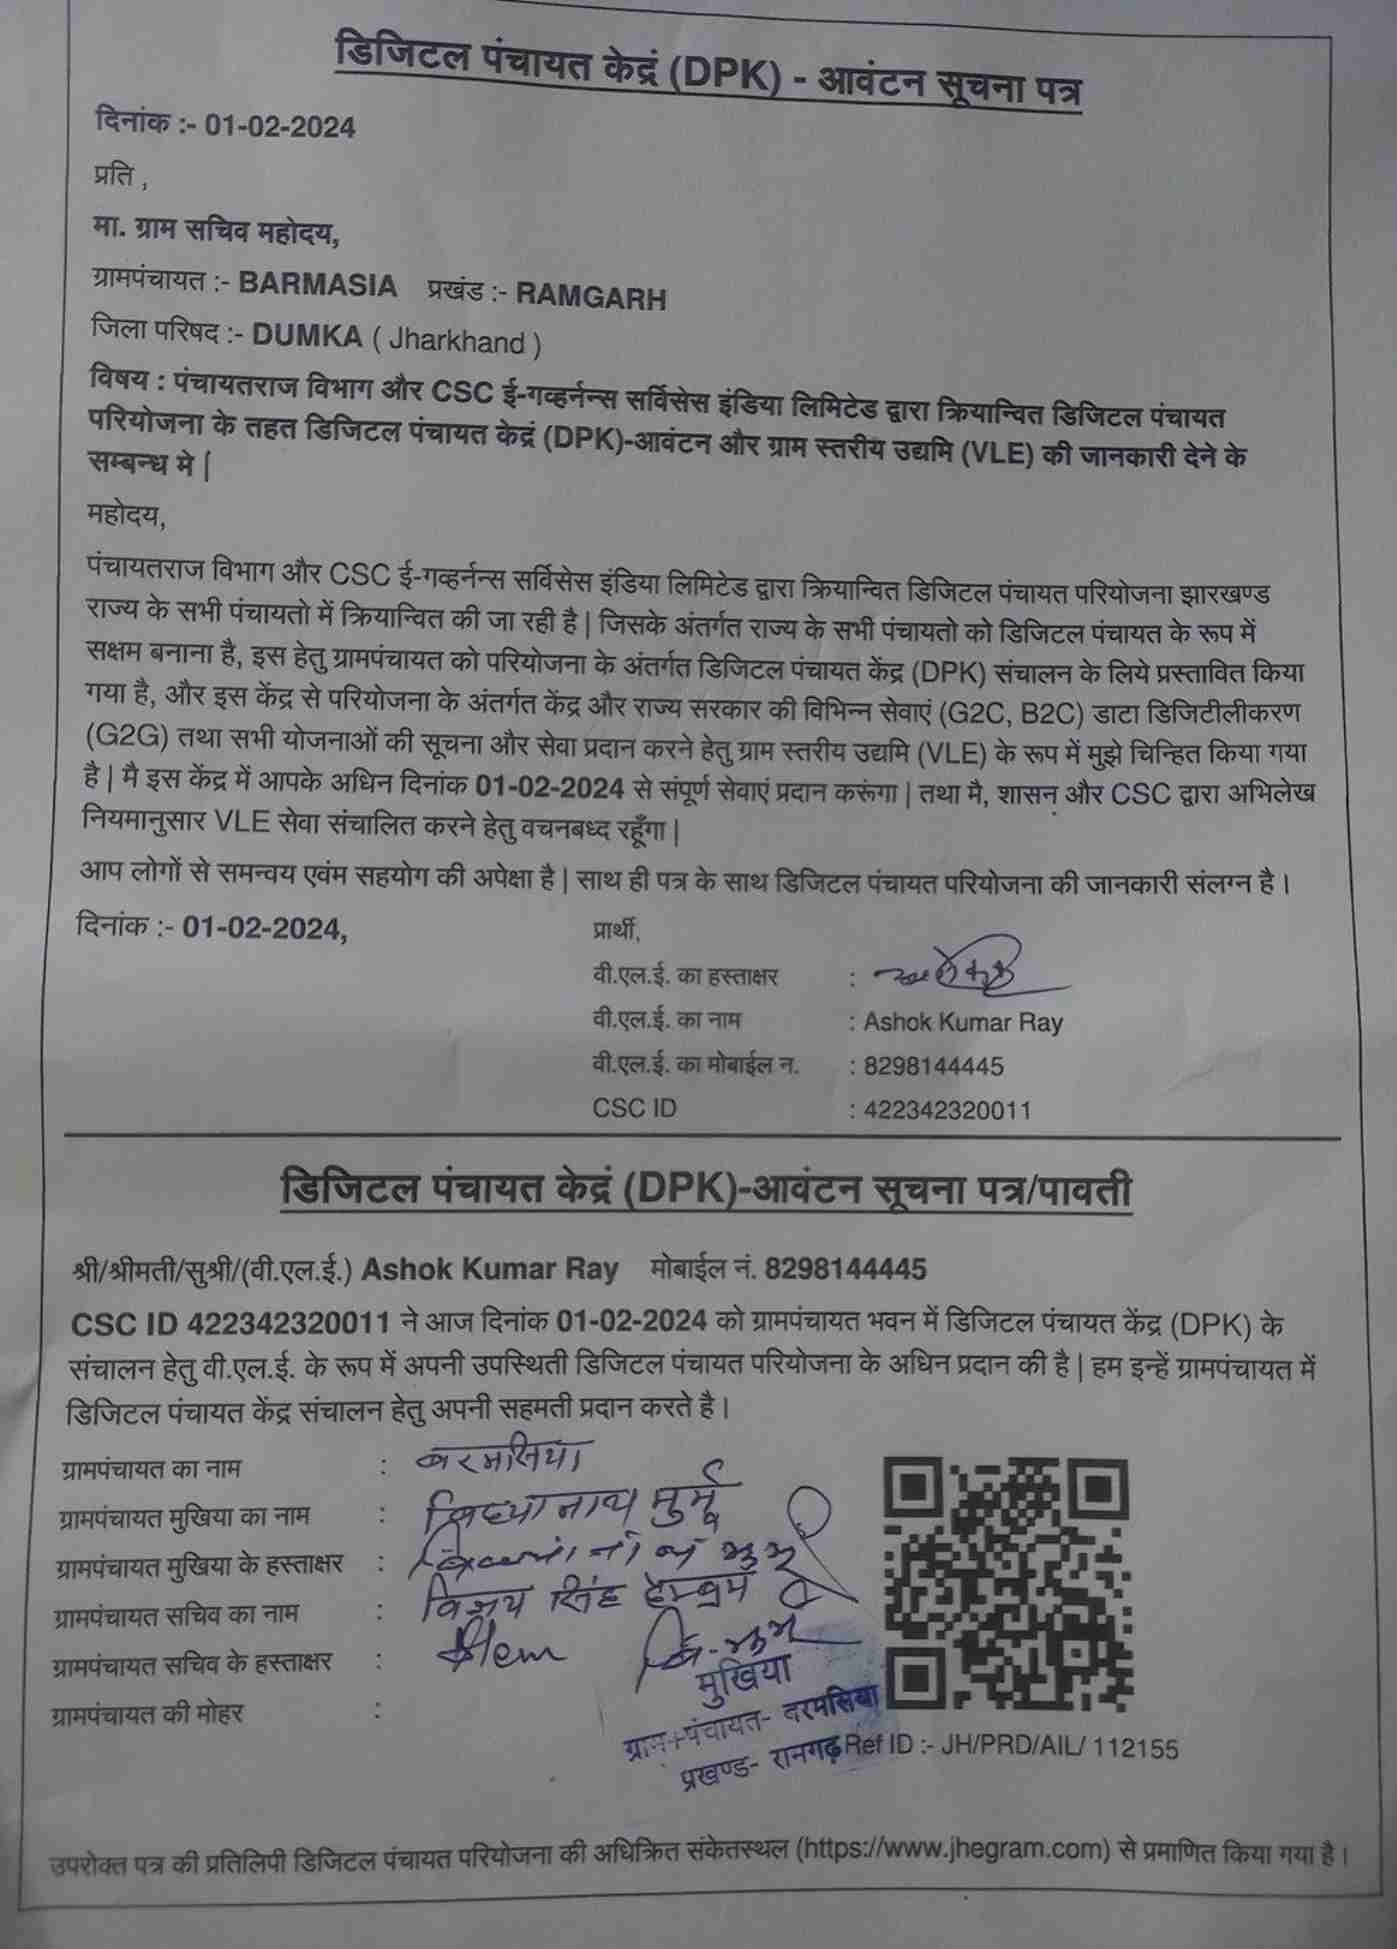 डिजिटल पंचायत केद्रं (DPK) - आवंटन सूचना पत्र
दिनांक :- 01-02-2024
प्रति ,
मा. ग्राम सचिव महोदय,
ग्रामपंचायत :- BARMASIA प्रखंड :- RAMGARH
जिला परिषद :- DUMKA ( Jharkhand )
विषय : पंचायतराज विभाग और CSC ई-गव्हर्नन्स सर्विसेस इंडिया लिमिटेड द्वारा क्रियान्वित डिजिटल पंचायत
परियोजना के तहत डिजिटल पंचायत केद्रं (DPK)-आवंटन और ग्राम स्तरीय उद्यमि (VLE) की जानकारी देने के
सम्बन्ध मे |
महोदय,
पंचायतराज विभाग और CSC ई-गव्हर्नन्स सर्विसेस इंडिया लिमिटेड द्वारा क्रियान्वित डिजिटल पंचायत परियोजना झारखण्ड
राज्य के सभी पंचायतो में क्रियान्वित की जा रही है | जिसके अंतर्गत राज्य के सभी पंचायतो को डिजिटल पंचायत के रूप में
सक्षम बनाना है, इस हेतु ग्रामपंचायत को परियोजना के अंतर्गत डिजिटल पंचायत केंद्र (DPK) संचालन के लिये प्रस्तावित किया
गया है, और इस केंद्र से परियोजना के अंतर्गत केंद्र और राज्य सरकार की विभिन्न सेवाएं (G2C, B2C) डाटा डिजिटीलीकरण
(G2G) तथा सभी योजनाओं की सूचना और सेवा प्रदान करने हेतु ग्राम स्तरीय उद्यमि (VLE) के रूप में मुझे चिन्हित किया गया
है | मै इस केंद्र में आपके अधिन दिनांक 01-02-2024 से संपूर्ण सेवाएं प्रदान करूंगा | तथा मै, शासन और CSC द्वारा अभिलेख
नियमानुसार VLE सेवा संचालित करने हेतु वचनबध्द रहूँगा |
आप लोगों से समन्वय एवंम सहयोग की अपेक्षा है | साथ ही पत्र के साथ डिजिटल पंचायत परियोजना की जानकारी संलग्न है ।
दिनांक :- 01-02-2024,
प्रार्थी,
वी.एल.ई. का हस्ताक्षर :
वी.एल.ई. का नाम : Ashok Kumar Ray
वी.एल.ई. का मोबाईल न. : 8298144445
CSC ID : 422342320011
डिजिटल पंचायत केद्रं (DPK)-आवंटन सूचना पत्र/पावती
श्री/श्रीमती/सुश्री/(वी.एल.ई.) Ashok Kumar Ray मोबाईल नं. 8298144445
CSC ID 422342320011 ने आज दिनांक 01-02-2024 को ग्रामपंचायत भवन में डिजिटल पंचायत केंद्र (DPK) के
संचालन हेतु वी.एल.ई. के रूप में अपनी उपस्थिती डिजिटल पंचायत परियोजना के अधिन प्रदान की है | हम इन्हें ग्रामपंचायत में
डिजिटल पंचायत केंद्र संचालन हेतु अपनी सहमती प्रदान करते है ।
ग्रामपंचायत का नाम : बरमसिया
ग्रामपंचायत मुखिया का नाम : मुर्मू
ग्रामपंचायत मुखिया के हस्ताक्षर :
ग्रामपंचायत सचिव का नाम : विजय सिंह हेम्ब्रम
ग्रामपंचायत सचिव के हस्ताक्षर :
मुखिया
ग्रामपंचायत की मोहर :
ग्राम+पंचायत- बरमसिया
प्रखण्ड- रामगढ़
Ref ID :- JH/PRD/AIL/ 112155
उपरोक्त पत्र की प्रतिलिपी डिजिटल पंचायत परियोजना की अधिक्रित संकेतस्थल (https://www.jhegram.com) से प्रमाणित किया गया है ।